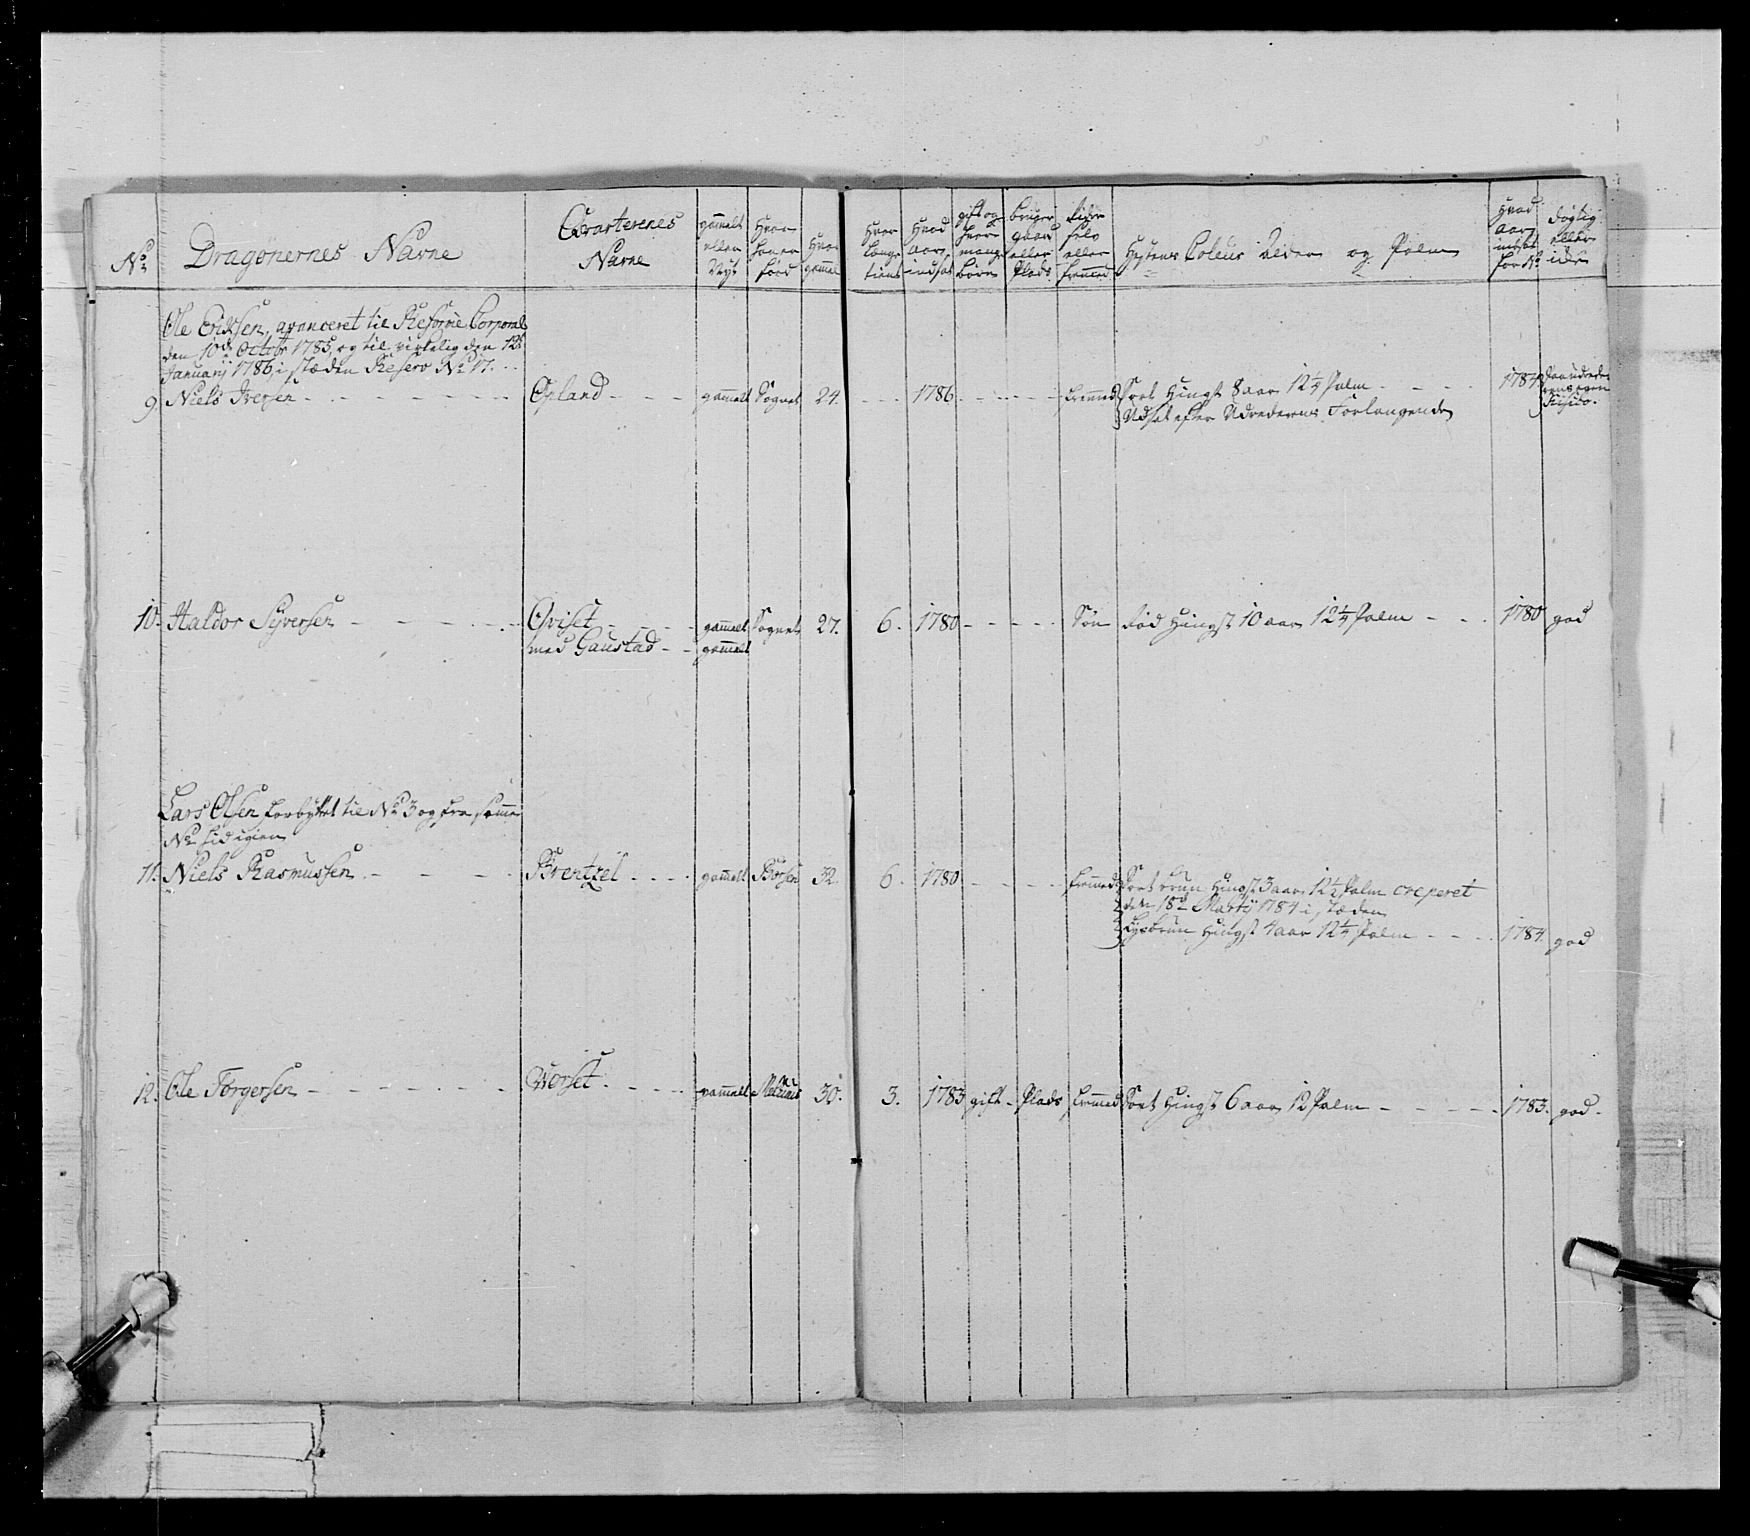 No
Dragonernes Navne
Qvarterenes
Navne
gammelt
eller
Nyt
Hvor
hand er
fød
Hvor
gammel
Hvor
lenge
tient
Hvad
aar
indsat
gift og
hvor
mange
børn
bruger
gaard
eller
Plads
Rider
selv
eller
fremmed
Hestens Coleur Alder og Palm
Hvad
aar
indsat
for No
døgtig
eller
icke
Ole Erichsen, avanceret til Reforme Corporal
den 10de Octobr 1785, og til virkelig den 12te
January 1786, i stæden Reserv No 17.
9. Niels Iversen Opland gammelt Sognet 24. 1786 fremmed Sort Hingst 8 aar 12¼ Palm 1784
Udsat efter Udrederens Forlangende
Risico.
10. Haldor Syversen Qviset gammelt Sognet 27. 6. 1780 Søn Rød Hingst 10 aar 12¼ Palm 1780 god
med Gaustad gammelt
Lars Olsen forbyttet til No 3 og fra samme
No hid igien
11. Niels Rasmussen Brentzel gammelt Børsen 32. 6. 1780 fremmed Sort brun Hingst 3 aar 12¼ Palm creperet
den 18de Marty 1784 i stæden
Lysbrun Hingst 4 aar 12¼ Palm 1784. god
12. Ole Torgersen Worset gammelt 30. 3. 1783 gift Plads fremmed Sort Hingst 6 aar 12 Palm 1783. god